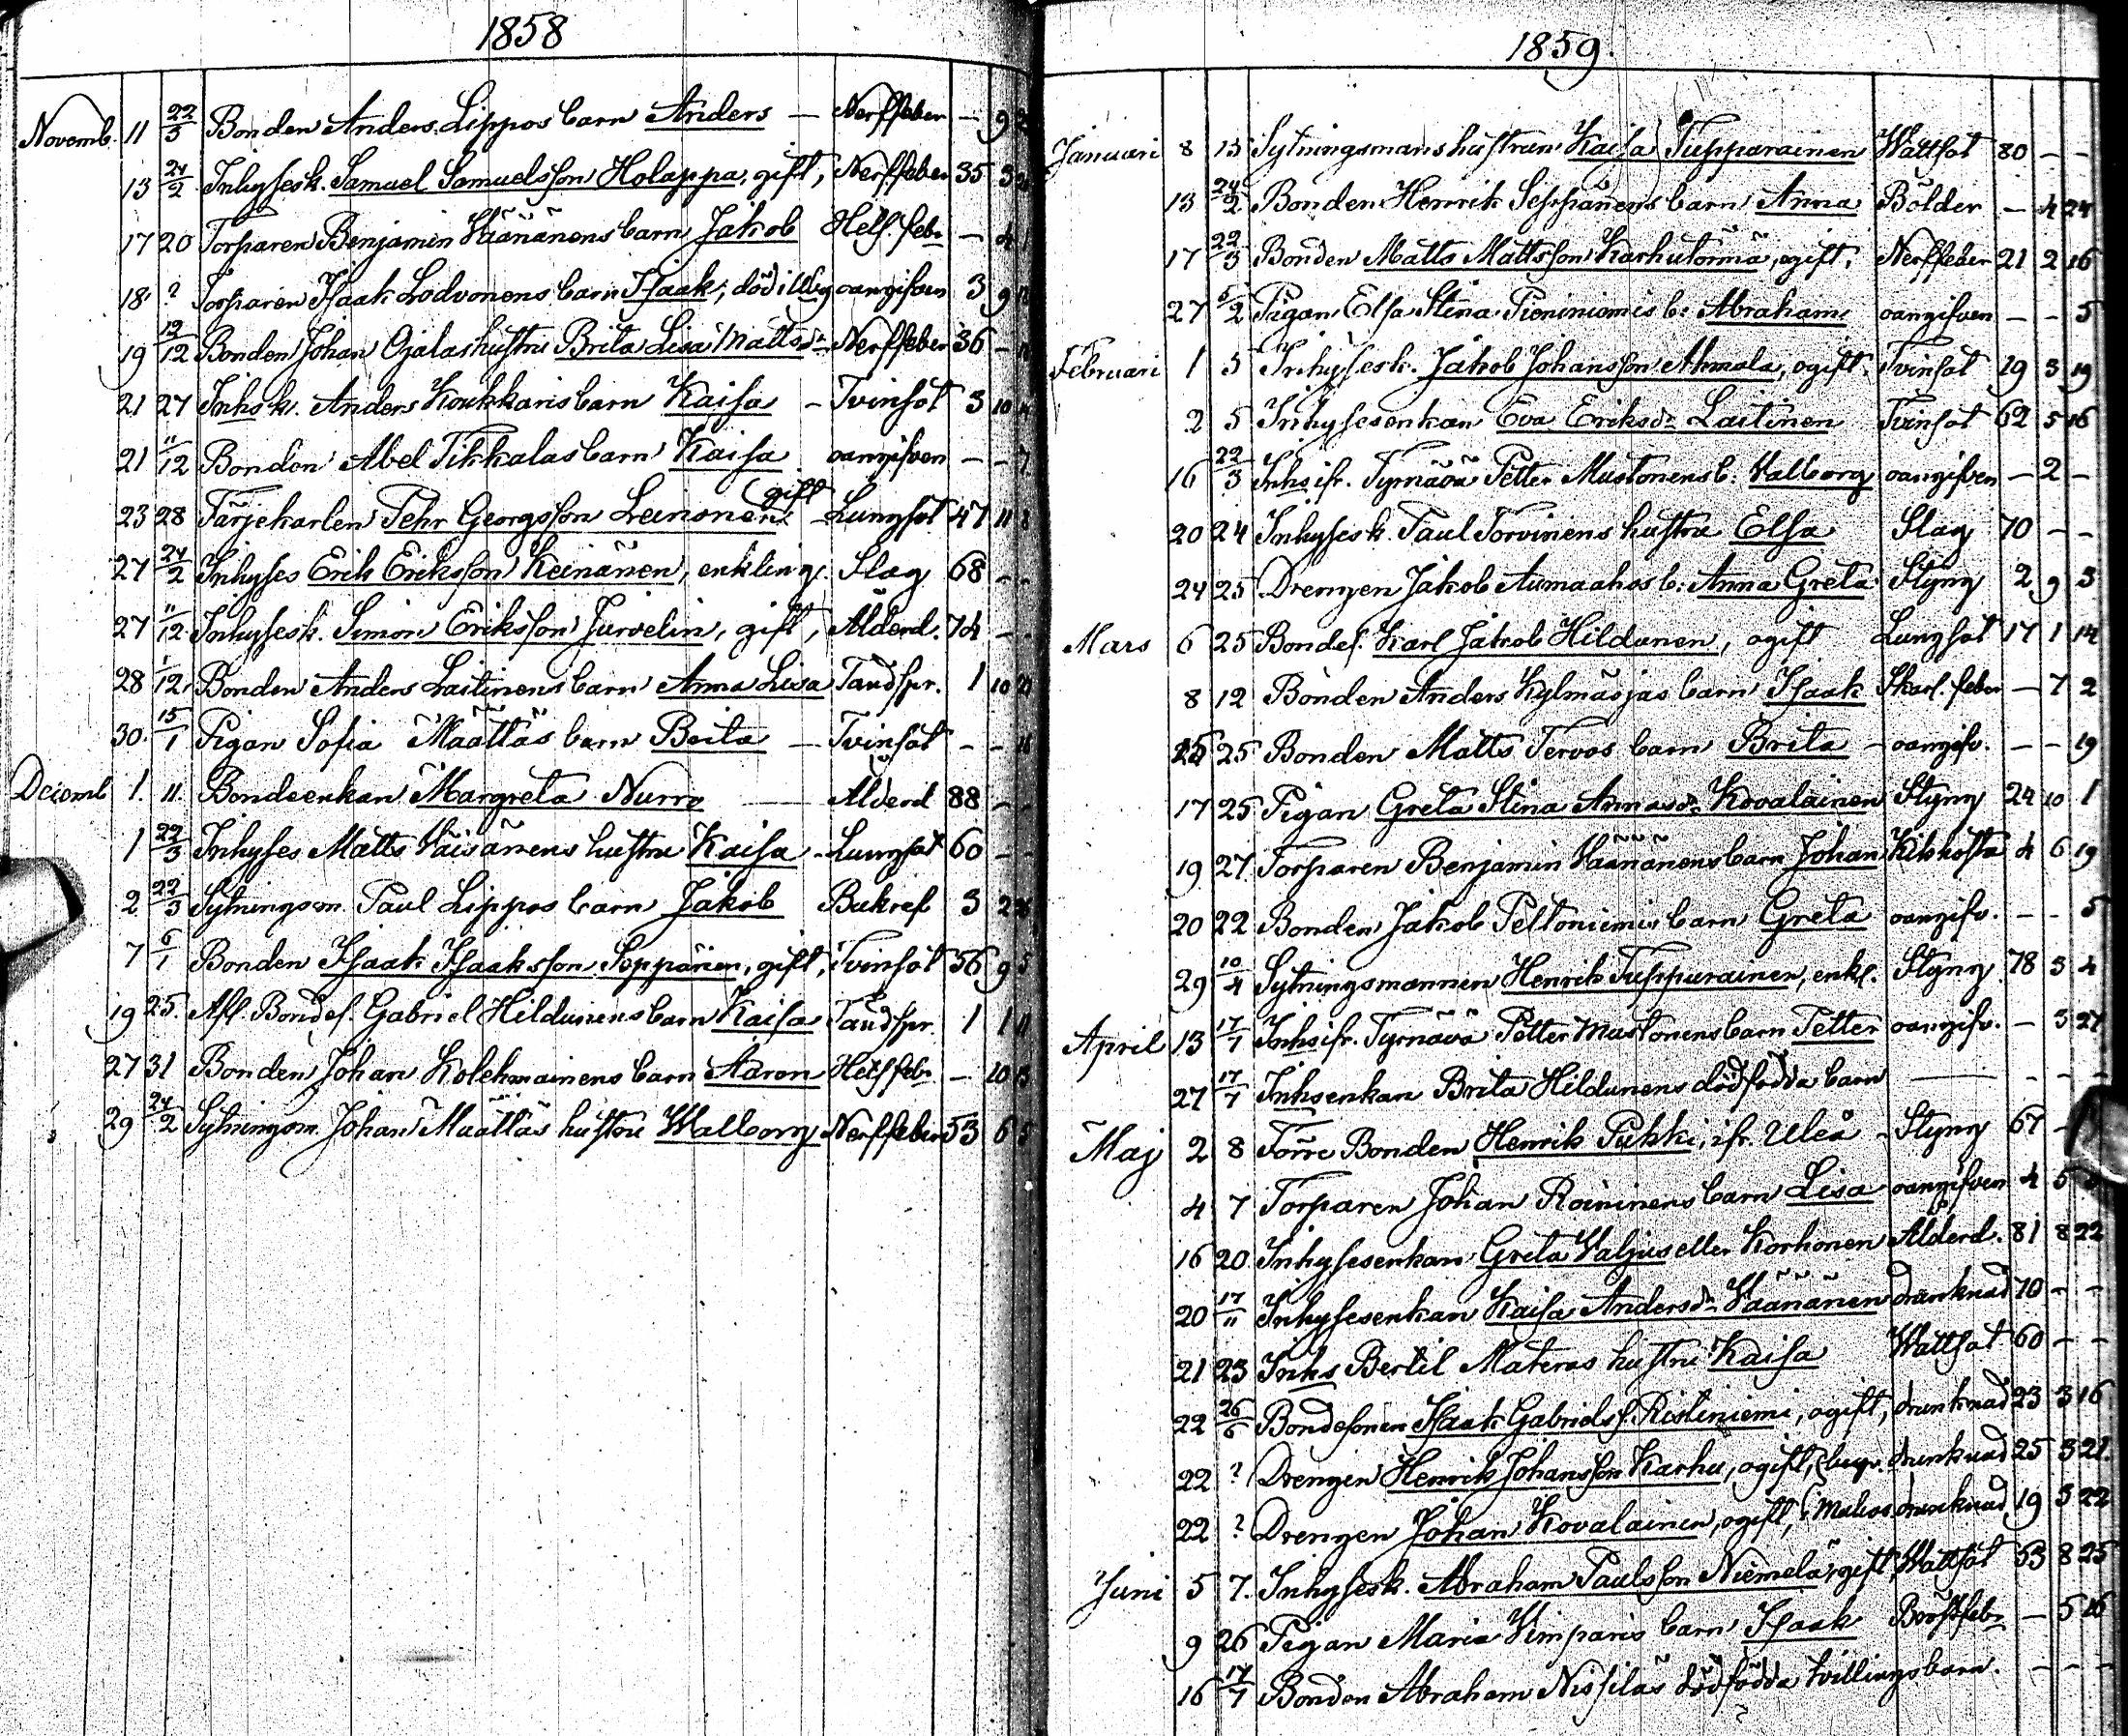 1858
Novemb. 11 22/3 Bonden Anders Lippos barn Anders — Nerffeber — 9
13 24/2 Inhysesk. Samuel Samuelsson Holappa, gift, Nerffeber 35 3
17 20 Torparen Benjamin Väänänens barn Jakob Hetf. feb. — 4
18 ? Torparen Isaak Lodvonens barn Isaak, död i oangifven 3 9
19 12/12 Bonden Johan Ojalas hustru Brita Lisa Mattsdr Nerffeber 36 —
21 27 Inhsk. Anders Koukkaris barn Kaisa — Tvinsot 3 10
21 11/12 Bonden Abel Tikkalas barn Kaisa oangifven — — 7
23 28 Färjekarlen Pehr Georgsson Leinonen gift Lungsot 47 11 8
27 24/2 Inhyses Erik Eriksson Keinänen, enkling. Slag 68 — —
27 11/12 Inhysesk. Simon Eriksson Jurvelin, gift, Ålderd. 74 — —
28 1/12 Bonden Anders Laitinens barn Anna Lisa Tandspr. 1 10 21
30. 15/1 Pigan Sofia Määttäs barn Brita — Tvinsot — —
Decemb 1. 11. Bondeenkan Margreta Nurro — Ålderd 88 — —
1 22/3 Inhyses Matts Väisänens hustru Kaisa — Lungsot 60 — —
2 22/3 Sytningsm. Paul Lippos barn Jakob Bukref 3 2
7 6/1 Bonden Isaak Isaaksson Seppänen, gift, Tvinsot 56 9 5
19 25. Afl. Bondes. Gabriel Hildunens barn Kaisa Tandspr. 1 1 11
27 31 Bonden Johan Kolehmainens barn Aaron Hetsfebr — 10
29 24/2 Sytningsm. Johan Määttäs hustru Walborg Nerffeber 53 6 5
1859.
Januari 8 13 Sytningsmanshustrun Kaisa Tupparainen Wattsot 80 — —
13 24/2 Bonden Henrik Seppänens barn Anna Bölder — 4 24
17 22/3 Bonden Matts Mattsson Karhutörmä, ogift, Nerffeber 21 2 16
27 5/2 Pigan Elsa Stina Pieniniemis b: Abraham oangifven — — 5
Februari 1 5 Inhysesk. Jakob Johansson Ahmala, ogift. Tvinsot 19 3 19
2 5 Inhysesenkan Eva Eriksdr Laitinen Tvinsot 62 5 16
16 22/3 Inhs ifr. Tyrnävä Petter Mustonens b: Valborg oangifven — 2 —
20 24 Inhysesk. Paul Torvinens hustru Elsa Slag 70 — —
24 25 Drengen Jakob Aumaahos b: Anna Greta Styng 2 9 3
Mars 6 25 Bondes. Karl Jakob Hildunen, ogift Lungsot 17 1 14
8 12 Bonden Anders Kylmäojas barn Isaak Skarl. feber — 7 2
15 25 Bonden Matts Tervos barn Brita — oangifv. — — 19
17 25 Pigan Greta Stina Annasdr Kovalainen Styng 24 10 1
19 27 Torparen Benjamin Väänänens barn Johan Kikhosta 4 6 19
20 22 Bonden Jakob Peltoniemis barn Greta oangifv. — — 5
29 10/4 Sytningsmannen Henrik Tuppurainen, enkl. Styng 78 3 4
April 13 17/7 Inhs ifr. Tyrnävä Petter Mustonens barn Petter oangifv. — 3 27
27 17/7 Inhsenkan Brita Hildunens dödfödda barn — — — —
Maj 2 8 Förre Bonden Henrik Pukki, ifr. Uleå — Styng 67 —
4 7 Torparen Johan Roininens barn Lisa oangifven 4 5
16 20 Inhysesenkan Greta Valjus eller Korhonen Ålderd. 81 8 22
20 17/11 Inhysesenkan Kaisa Andersdr Väänänen drunknad 70 — —
21 23 Inhs Bertil Materos hustru Kaisa Wattsot 60 — —
22 26/6 Bondesonen Isaak Gabrielss. Ristiniemi, ogift, drunknad 23 3 16
22 ? Drengen Henrik Johansson Karhu, ogift, (begr. drunknad 25 3 21.
22 ? Drengen Johan Kovalainen, ogift, (Muhos drunknad 19 3 22
Juni 5 7. Inhysesk. Abraham Paulsson Niemelä, gift, Wattsot 53 8 25
9 26 Pigan Maria Vimparis barn Isaak Bröstfebr — 5 16
16 17/7 Bonden Abraham Nissiläs dödfödda tvillingsbarn. — — —